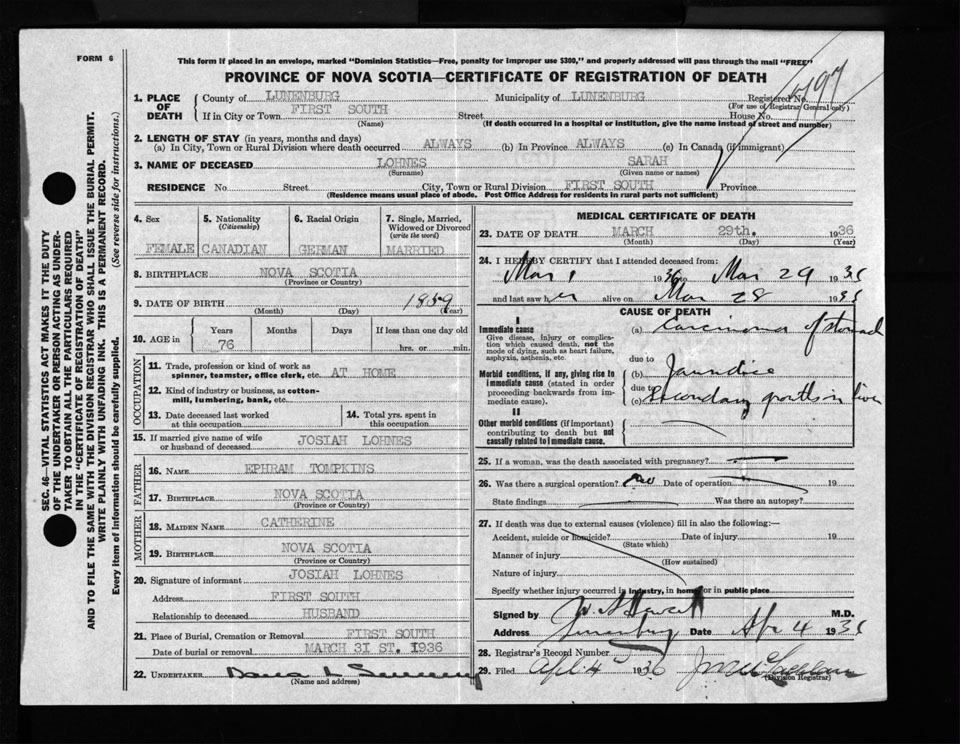 FORM 6
This form if placed in an envelope, marked "Dominion Statistics—Free, penalty for improper use $300," and properly addressed will pass through the mail "FREE"
PROVINCE OF NOVA SCOTIA—CERTIFICATE OF REGISTRATION OF DEATH
1. PLACE OF DEATH
County of LUNENBURG Municipality of LUNENBURG Registered No.
(For use of Registrar General only)
If in City or Town FIRST SOUTH Street House No.
(Name) (If death occurred in a hospital or institution, give the name instead of street and number)
2. LENGTH OF STAY (in years, months and days)
(a) In City, Town or Rural Division where death occurred ALWAYS (b) In Province ALWAYS (c) In Canada (if immigrant)
3. NAME OF DECEASED LOHNES SARAH
(Surname) (Given name or names)
RESIDENCE No. Street City, Town or Rural Division FIRST SOUTH Province
(Residence means usual place of abode. Post Office Address for residents in rural parts not sufficient)
4. Sex
FEMALE
5. Nationality
(Citizenship)
CANADIAN
6. Racial Origin
GERMAN
7. Single, Married, Widowed or Divorced
(write the word)
MARRIED
8. BIRTHPLACE NOVA SCOTIA
(Province or Country)
9. DATE OF BIRTH 1859
(Month) (Day) (Year)
10. AGE in
Years Months Days If less than one day old
76 hrs. or min.
OCCUPATION
11. Trade, profession or kind of work as
spinner, teamster, office clerk, etc. AT HOME
12. Kind of industry or business, as cotton-
mill, lumbering, bank, etc.
13. Date deceased last worked
at this occupation
14. Total yrs. spent in
this occupation
15. If married give name of wife
or husband of deceased JOSIAH LOHNES
FATHER
16. NAME EPHRAM TOMPKINS
17. BIRTHPLACE NOVA SCOTIA
(Province or Country)
MOTHER
18. MAIDEN NAME CATHERINE
19. BIRTHPLACE NOVA SCOTIA
(Province or Country)
20. Signature of informant JOSIAH LOHNES
Address FIRST SOUTH
Relationship to deceased HUSBAND
21. Place of Burial, Cremation or Removal FIRST SOUTH
Date of burial or removal MARCH 31 ST. 1936
22. UNDERTAKER
(Name and address)
MEDICAL CERTIFICATE OF DEATH
23. DATE OF DEATH MARCH 29th. 1936
(Month) (Day) (Year)
24. I HEREBY CERTIFY that I attended deceased from:
Mar 1 1936 to Mar 29 1936
and last saw her alive on Mar 28 1936
CAUSE OF DEATH
I
Immediate cause
Give disease, injury or complication which caused death, not the mode of dying, such as heart failure, asphyxia, asthenia, etc.
(a) Carcinoma of stomach
due to
Morbid conditions, if any, giving rise to immediate cause (stated in order proceeding backwards from immediate cause).
(b) Jaundice
due to
(c) Secondary growths in liver
II
Other morbid conditions (if important) contributing to death but not causally related to immediate cause.
25. If a woman, was the death associated with pregnancy?
26. Was there a surgical operation? no Date of operation 19
State findings Was there an autopsy?
27. If death was due to external causes (violence) fill in also the following:—
Accident, suicide or homicide? Date of injury 19
(State which)
Manner of injury
(How sustained)
Nature of injury
Specify whether injury occurred in industry, in home, or in public place
Signed by M.D.
Address Lunenburg Date Apr 4 1936
28. Registrar's Record Number
29. Filed April 4 1936
(Division Registrar)
SEC. 46—VITAL STATISTICS ACT MAKES IT THE DUTY
OF THE UNDERTAKER OR PERSON ACTING AS UNDER-
TAKER TO OBTAIN ALL THE PARTICULARS REQUIRED
IN THE "CERTIFICATE OF REGISTRATION OF DEATH"
AND TO FILE THE SAME WITH THE DIVISION REGISTRAR WHO SHALL ISSUE THE BURIAL PERMIT.
WRITE PLAINLY WITH UNFADING INK. THIS IS A PERMANENT RECORD.
Every item of information should be carefully supplied. (See reverse side for instructions.)